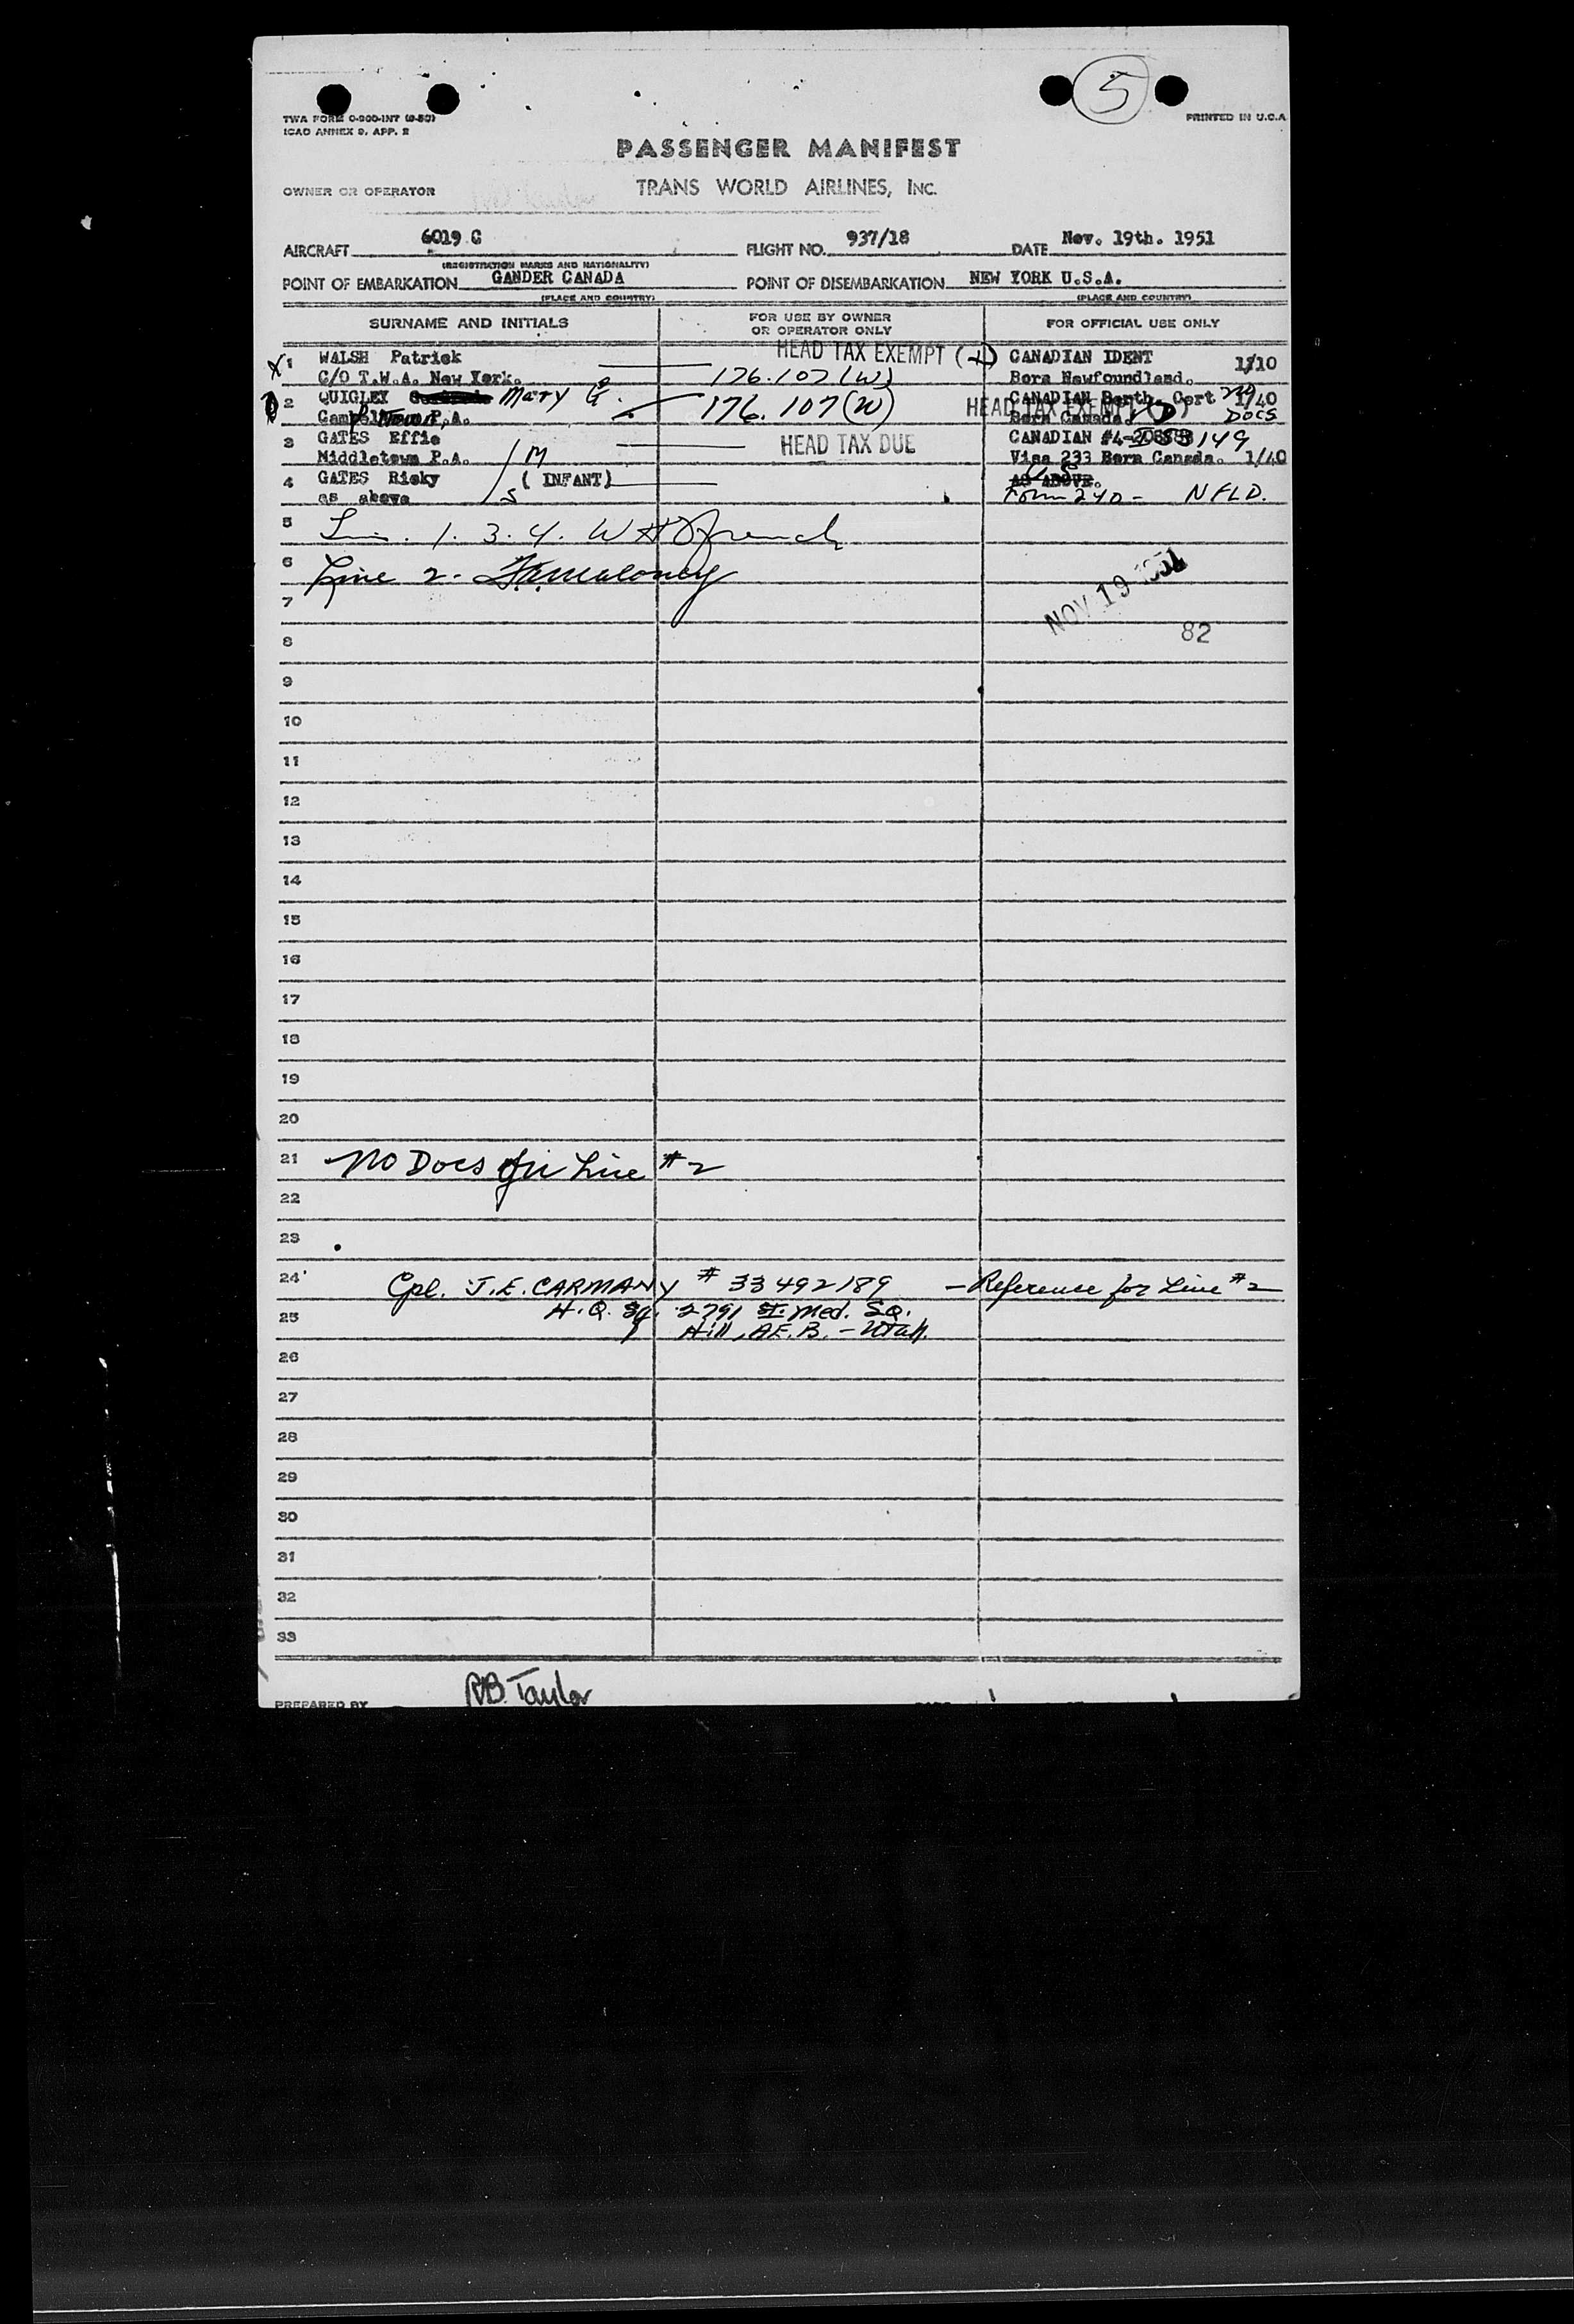 5
TWA FORM O-900-INT (9-50)
ICAO ANNEX 9, APP. 2
PRINTED IN U.S.A
PASSENGER MANIFEST
OWNER OR OPERATOR TRANS WORLD AIRLINES, INC.
AIRCRAFT 6019 C FLIGHT NO. 937/18 DATE Nov. 19th. 1951
(REGISTRATION MARKS AND NATIONALITY)
POINT OF EMBARKATION GANDER CANADA POINT OF DISEMBARKATION NEW YORK U.S.A.
(PLACE AND COUNTRY) (PLACE AND COUNTRY)
SURNAME AND INITIALS FOR USE BY OWNER OR OPERATOR ONLY FOR OFFICIAL USE ONLY
X 1 WALSH Patrick HEAD TAX EXEMPT CANADIAN IDENT 1/10
C/O T.W.A. New York. 176.107 (W) Born Newfoundland.
2 QUIGLEY Mary G. CANADIAN Berth. Cert 1/40
P.A. 176.107 (W) HEAD TAX EXEMPT (D) Born Canada NO DOCS
3 GATES Effie HEAD TAX DUE CANADIAN 149
Middletown P.A. M Visa 233 Born Canada. 1/40
4 GATES Ricky (INFANT) AS ABOVE. U.S.
as above S Form 240 - NFLD.
5 1. 3. 4. W H French
6 Line 2. Maloney
7 NOV 19 1951
8 82
9
10
11
12
13
14
15
16
17
18
19
20
21 No Docs for Line #2
22
23
24 Cpl. J.E. CARMANY # 33492189 - Reference for Line #2
25 H.Q. Sq. 2791 st. Med. SQ.
Hill, A.F.B. - Utah.
26
27
28
29
30
31
32
33
PREPARED BY RB. Taylor